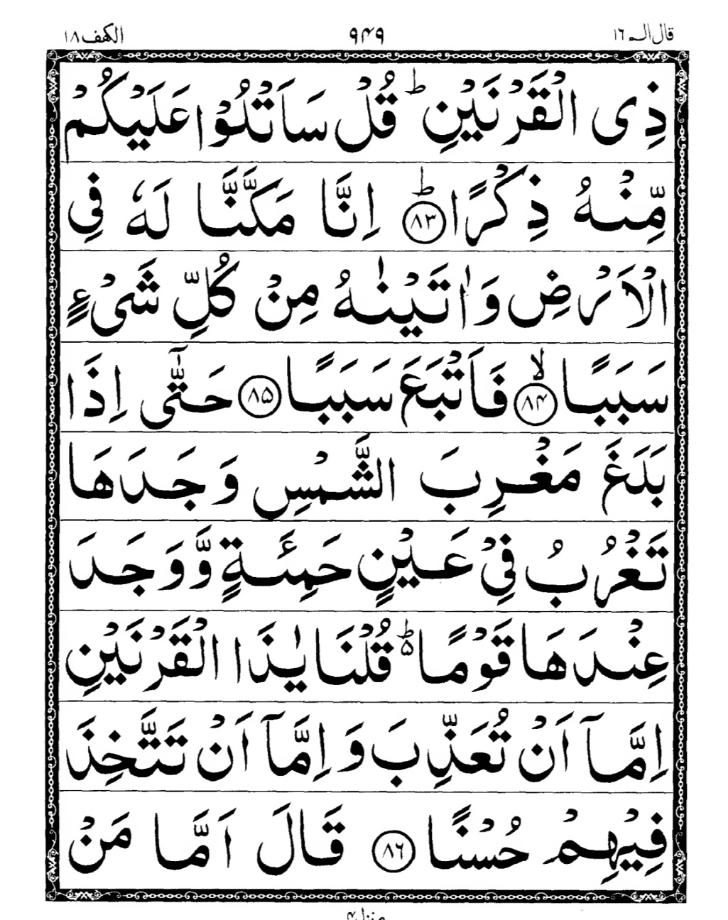 قال الم ١٦ ٩٤٩ الكهف ١٨
ذِی الْقَرْنَیْنِ ؕ قُلْ سَاَتْلُوْا عَلَیْكُمْ
مِّنْهُ ذِكْرًا ؕ ﴿۸۳﴾ اِنَّا مَكَّنَّا لَهٗ فِی
الْاَرْضِ وَاٰتَیْنٰهُ مِنْ كُلِّ شَیْءٍ
سَبَبًا ۙ ﴿۸۴﴾ فَاَتْبَعَ سَبَبًا ﴿۸۵﴾ حَتّٰۤی اِذَا
بَلَغَ مَغْرِبَ الشَّمْسِ وَجَدَهَا
تَغْرُبُ فِیْ عَیْنٍ حَمِئَةٍ وَّوَجَدَ
عِنْدَهَا قَوْمًا ؕ۬ قُلْنَا یٰذَا الْقَرْنَیْنِ
اِمَّاۤ اَنْ تُعَذِّبَ وَاِمَّاۤ اَنْ تَتَّخِذَ
فِیْهِمْ حُسْنًا ﴿۸۶﴾ قَالَ اَمَّا مَنْ
منزل ۴